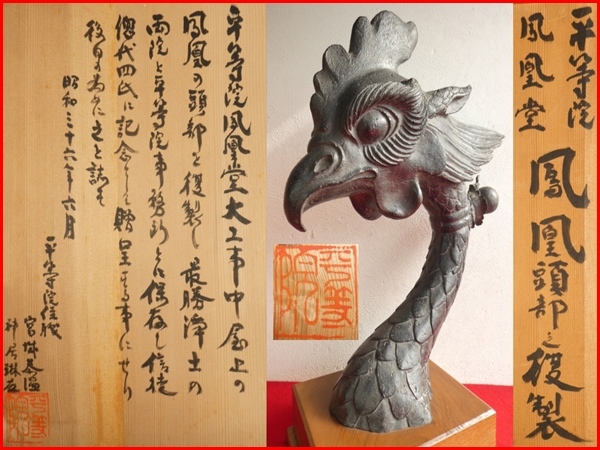 平等院鳳凰堂大工事中屋上の
鳳凰の頭部を復製し最勝浄土の
両院と平等院事務所とに保存し信徒
總代四氏に記念として贈呈する事にせり
後日の為めに之を誌す
昭和三十六年六月
平等院住職
宮城
平等院
平等院
鳳凰堂
鳳凰頭部之複製